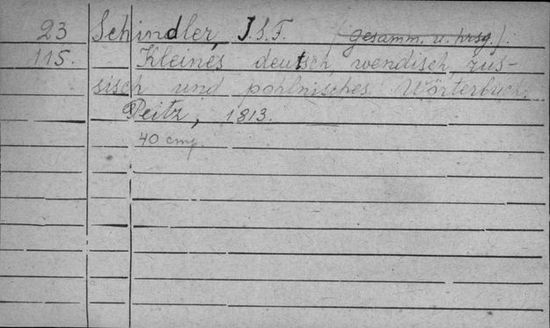 23 Schindler, J.S.F. (Gesamm. u. hrsg.).
115. Kleines deutsch, wendisch, rus-
sisch und pohlnisches Wörterbuch.
Peitz, 1813.
40 стр.